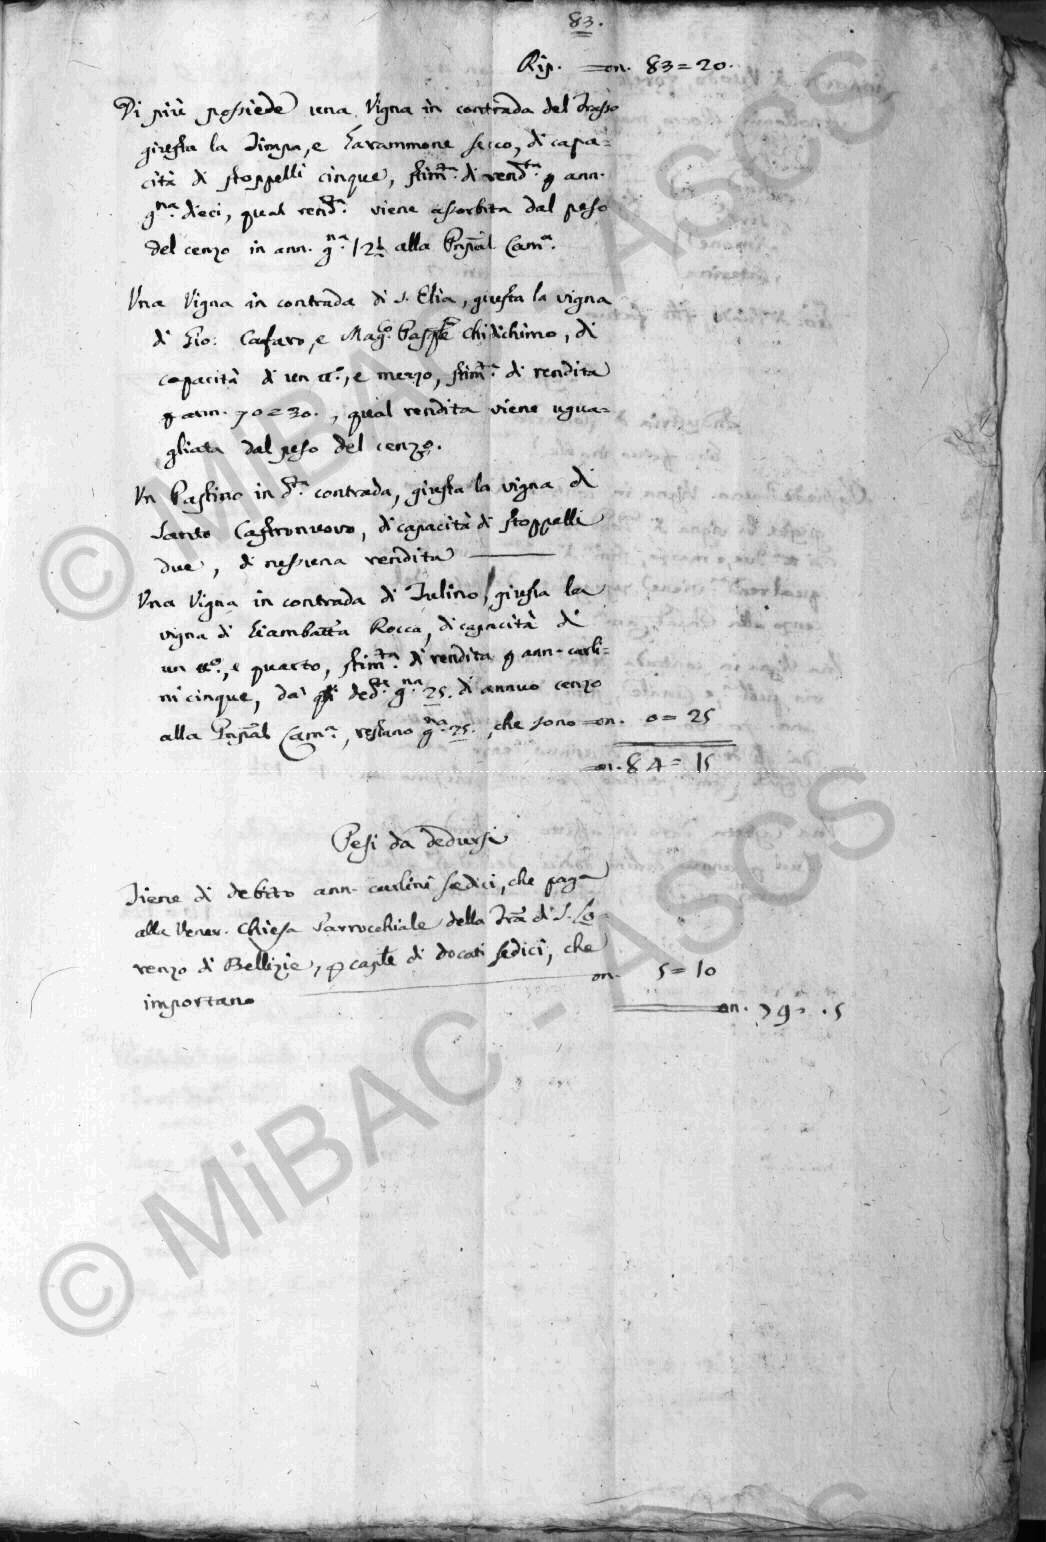 83.
Rip. on. 83=20.
Di più possiede una Vigna in contrada del Trasso
giusta la Timpa, e Garammone secco, di capa=
cità di stoppelli cinque, stim.ta di rend.ta p ann.
g.na dieci, qual rend.ta viene assorbita dal peso
del cenzo in ann. g.na 12½ alla Prãl Cam.a.
Una Vigna in contrada di S. Elia, giusta la vigna
di Gio: Cafaro, e Mag.co Pasqle Chidichimo, di
capacità di un , e mezzo, stim.ta di rendita
p ann. 70=30., qual rendita viene ugua=
gliata dal peso del cenzo.
Un Pastino in d.ta contrada, giusta la vigna di
Santo Castronuovo, di capacità di stoppelli
due, di nessuna rendita
Una Vigna in contrada di Tulino, giusta la
vigna di Giambatta Rocca, di capacità di
un , e quarto, stim.ta di rendita p ann. carli=
ni cinque, da' qli ded.ti g.na 25. di annuo cenzo
alla Cam.a, restano g.na 25., che sono on. 0=25
on. 84=15
Pesi da dedursi
Tiene di debito ann. carlini sedici, che paga
alla Vener. Chiesa Parrocchiale della Trã di S. Lo=
renzo di Bellizie, p caple di docati sedici, che
importano on. 5=10
on. 79= .5
© MiBAC - ASCS
© MiBAC - ASCS